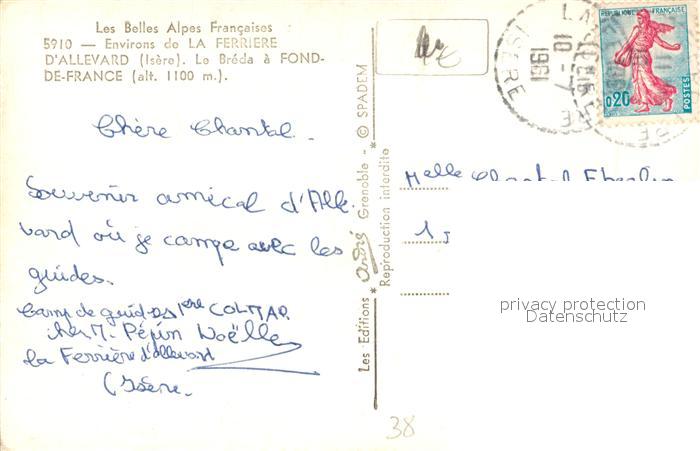 Les Belles Alpes Françaises
5910 — Environs de LA FERRIERE
D'ALLEVARD (Isère). Le Bréda à FOND-
DE-FRANCE (alt. 1100 m.).
Chère Chantal -
Souvenir amical d'Alle
vard où je campe avec les
guides.
Camp de guides 1ère COLMAR
chez M. Pépin Noëlle
La Ferrière d'allevard
(Isère.
Les Editions * André * Grenoble - © SPADEM
Reproduction interdite
ISERE
10 - 7
1961
REPUBLIQUE FRANÇAISE
0,20
POSTES
Melle Chantal
privacy protection
Datenschutz
38